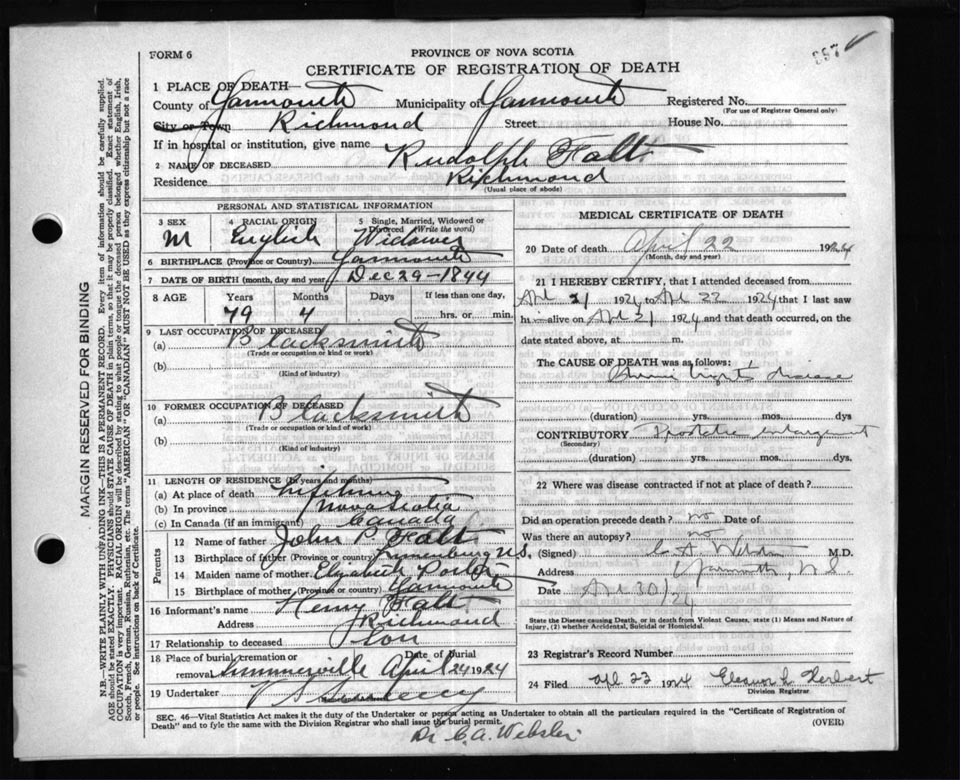 FORM 6
PROVINCE OF NOVA SCOTIA
CERTIFICATE OF REGISTRATION OF DEATH
397
1 PLACE OF DEATH—
County of Yarmouth Municipality of Yarmouth Registered No.
(For use of Registrar General only)
City or Town Richmond Street House No.
If in hospital or institution, give name
2 NAME OF DECEASED Rudolph Falt
Residence Richmond
(Usual place of abode)
PERSONAL AND STATISTICAL INFORMATION
3 SEX 4 RACIAL ORIGIN 5 Single, Married, Widowed or Divorced (Write the word)
M English Widower
6 BIRTHPLACE (Province or Country) Yarmouth
7 DATE OF BIRTH (month, day and year) Dec 29-1844
8 AGE Years Months Days If less than one day,
79 4 hrs. or min.
9 LAST OCCUPATION OF DECEASED
(a) Blacksmith
(Trade or occupation or kind or work)
(b)
(Kind of industry)
10 FORMER OCCUPATION OF DECEASED
(a) Blacksmith
(Trade or occupation or kind of work)
(b)
(Kind of industry)
11 LENGTH OF RESIDENCE (in years and months)
(a) At place of death lifetime
(b) In province Nova Scotia
(c) In Canada (if an immigrant) Canada
Parents
12 Name of father John P. Falt
13 Birthplace of father (Province or country) Lunenburg N.S.
14 Maiden name of mother Elizabeth Porter
15 Birthplace of mother (Province or country) Yarmouth
16 Informant's name Henry Falt
Address Richmond
17 Relationship to deceased Son
18 Place of burial, cremation or removal Date of burial
Summerville April 24 1924
19 Undertaker V S Sweeny
MEDICAL CERTIFICATE OF DEATH
20 Date of death April 22 19
(Month, day and year)
21 I HEREBY CERTIFY, that I attended deceased from
Apl 21 1924 to Apl 22 1924 that I last saw
him alive on Apl 21 1924 and that death occurred, on the
date stated above, at m.
The CAUSE OF DEATH was as follows:
disease
(duration) yrs. mos. dys
CONTRIBUTORY Prostatic enlargement
(Secondary)
(duration) yrs. mos. dys.
22 Where was disease contracted if not at place of death?
Did an operation precede death? no Date of
Was there an autopsy? no
(Signed) C. A. Webster M.D.
Address Yarmouth, N.S.
Date Apl 30/24
State the Disease causing Death, or in death from Violent Causes, state (1) Means and Nature of
Injury, (2) whether Accidental, Suicidal or Homicidal.
23 Registrar's Record Number
24 Filed Apl 23 1924 Eleanor L Herbert
Division Registrar
SEC. 46—Vital Statistics Act makes it the duty of the Undertaker or person acting as Undertaker to obtain all the particulars required in the "Certificate of Registration of
Death" and to fyle the same with the Division Registrar who shall issue the burial permit. (OVER)
Dr C. A. Webster
MARGIN RESERVED FOR BINDING
N.B.—WRITE PLAINLY WITH UNFADING INK—THIS IS A PERMANENT RECORD. Every item of information should be carefully supplied.
AGE should be stated EXACTLY. PHYSICIANS should STATE CAUSE OF DEATH in plain terms, so that it may be properly classified. Exact statement of
OCCUPATION is very important. RACIAL ORIGIN will be described by stating to what people or tongue the deceased person belonged whether English, Irish,
Scotch, French, German, Russian, Ruthenian, etc. The terms "AMERICAN" OR "CANADIAN" MUST NOT BE USED as they express citizenship but not a race
or people. See instructions on back of Certificate.